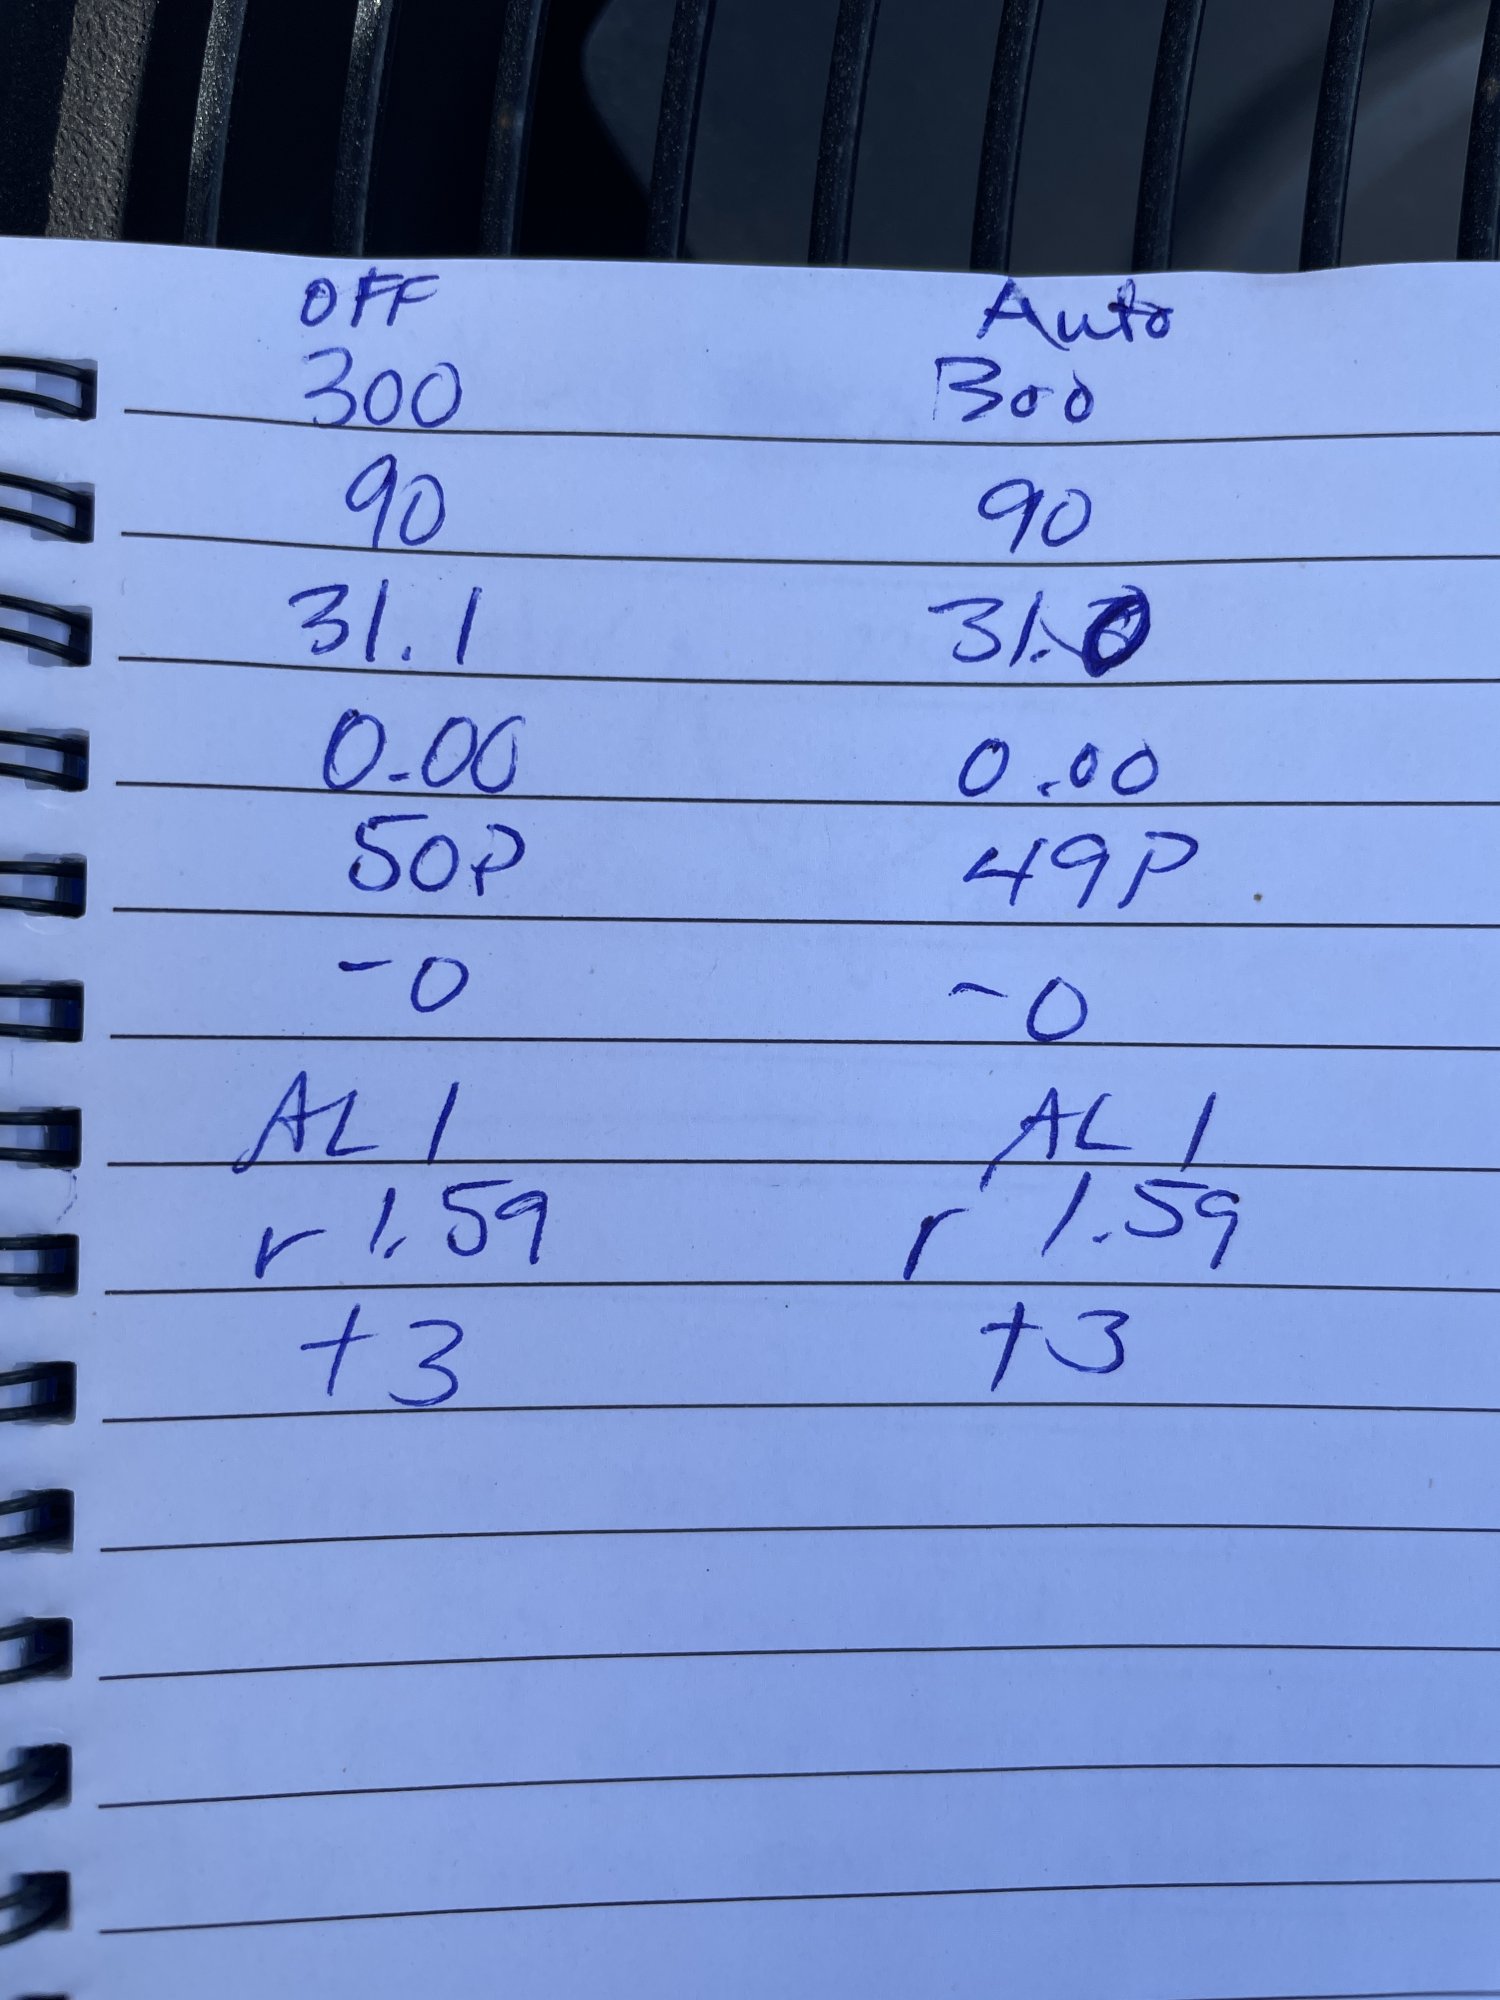 OFF Auto
300 300
90 90
31.1 31.0
0.00 0.00
50P 49P
-0 -0
AL 1 AL 1
r 1.59 r 1.59
+3 +3